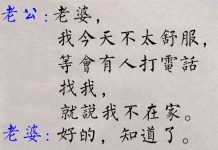 老公:老婆,
我今天不太舒服,
等會有人打電話
找我,
就說我不在家。
老婆:好的,知道了。